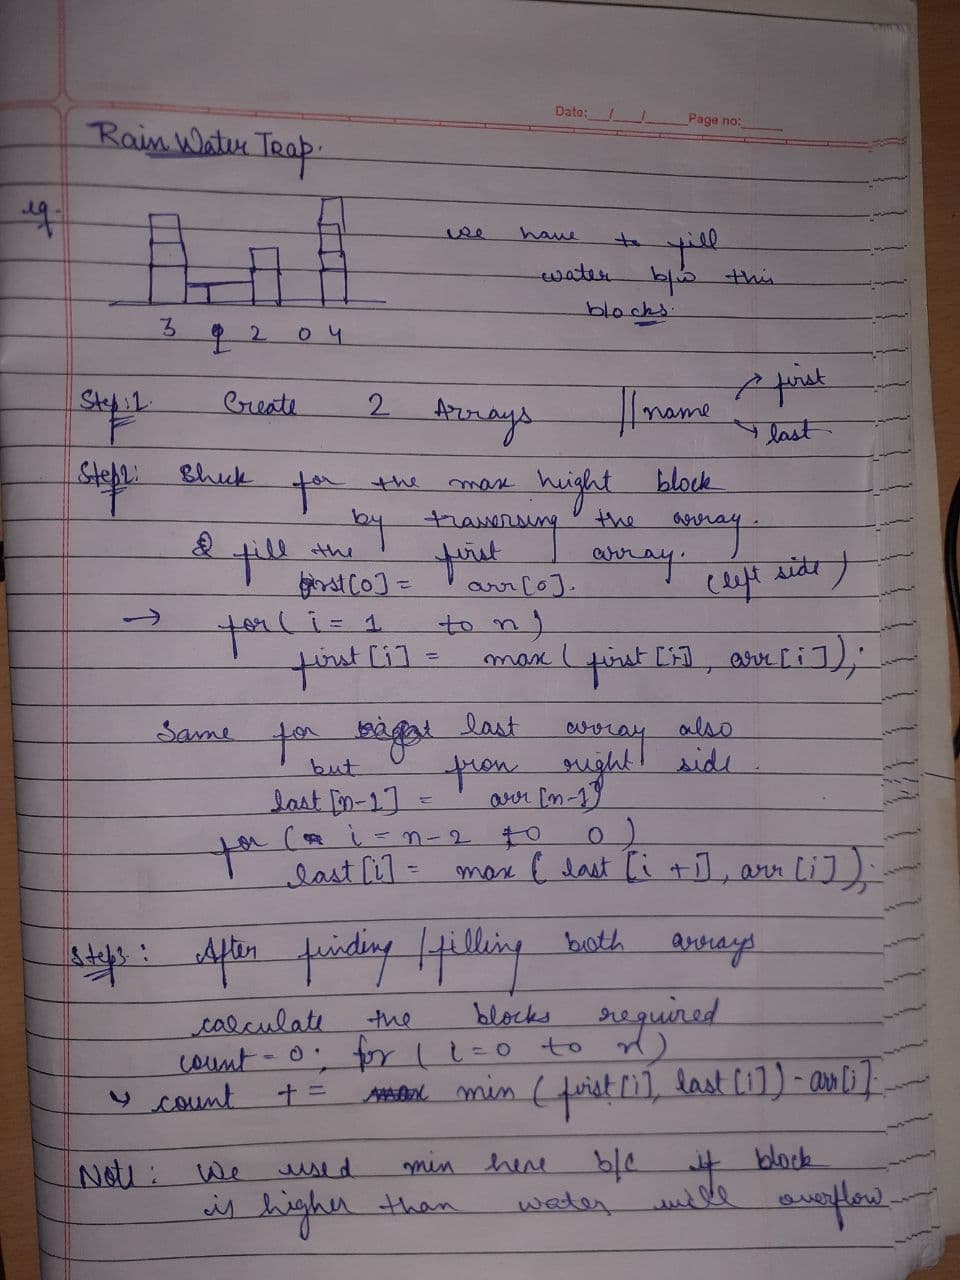 Date: __/__/____ Page no:_____
Rain Water Trap.
eg.
we have to fill
water b/w this
blocks.
3 2 0 4
Step:1. Create 2 Arrays || name → first
→ last
Step2: Check for the max height block
by traversing the array.
& fill the first array. (left side)
first[0] = arr[0].
→ for( i = 1 to n)
first [i] = max ( first [i], arr[i]);
Same for last array also
but from right side
last [n-1] = arr [n-1]
for ( i = n-2 to 0 )
last [i] = max ( last [i +1], arr [i]);
Step3: After finding / filling both arrays
calculate the blocks required
count = 0; for ( i = 0 to n)
↳ count += min ( first [i], last [i]) - arr[i].
Note: We used min here b/c if block
is higher than water will overflow